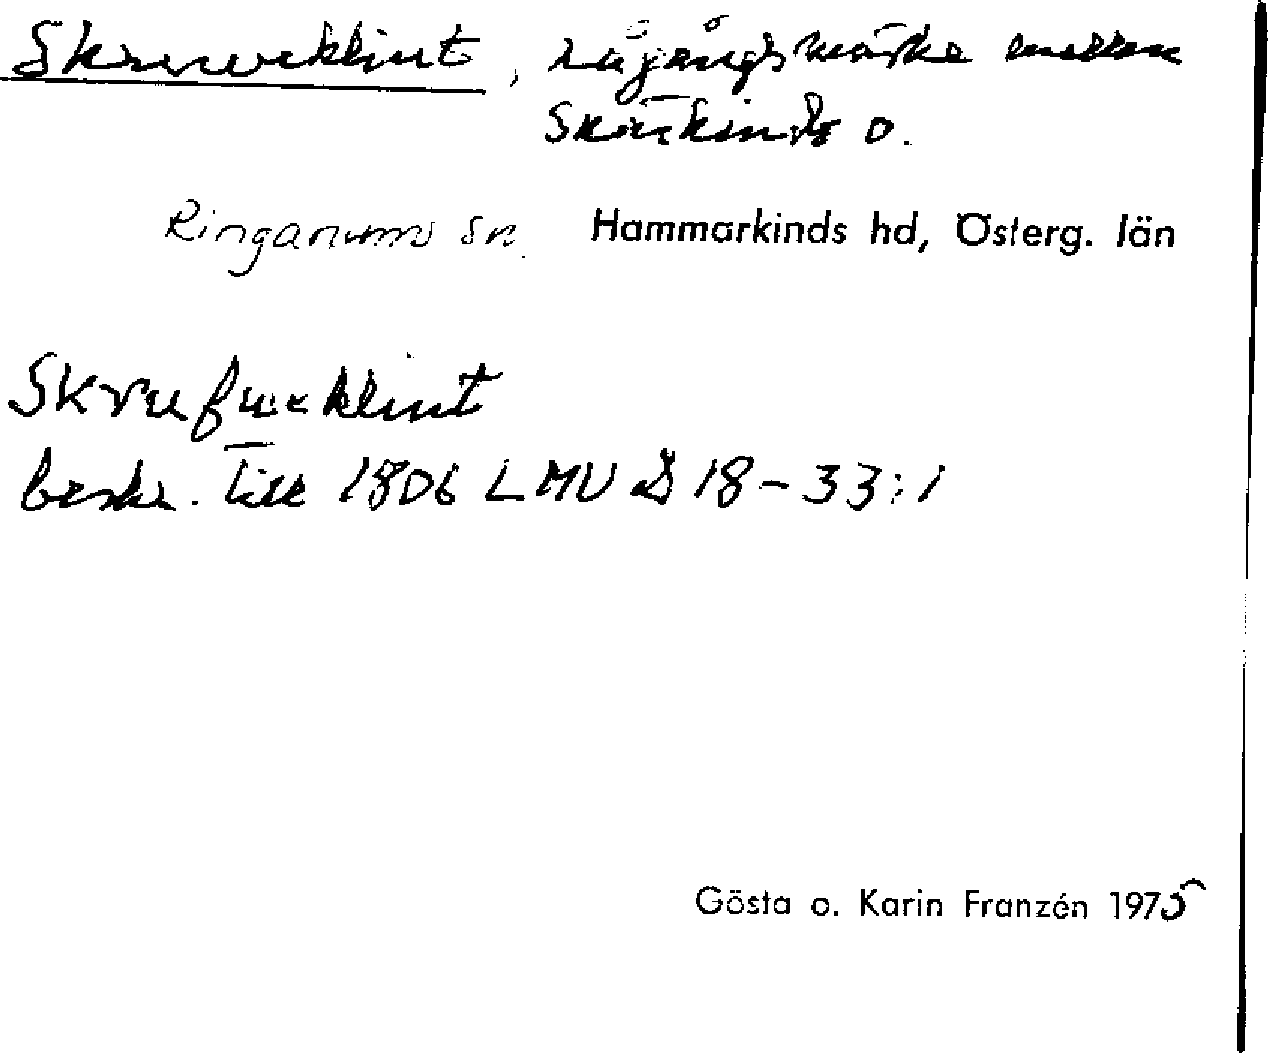 Skruveklint, rågångsmärke mellan
Skärkinds o.
Ringarums sn. Hammarkinds hd, Österg. län
Skrufweklint
beskr. till 1806 LMV D 18-33:1
Gösta o. Karin Franzén 1975